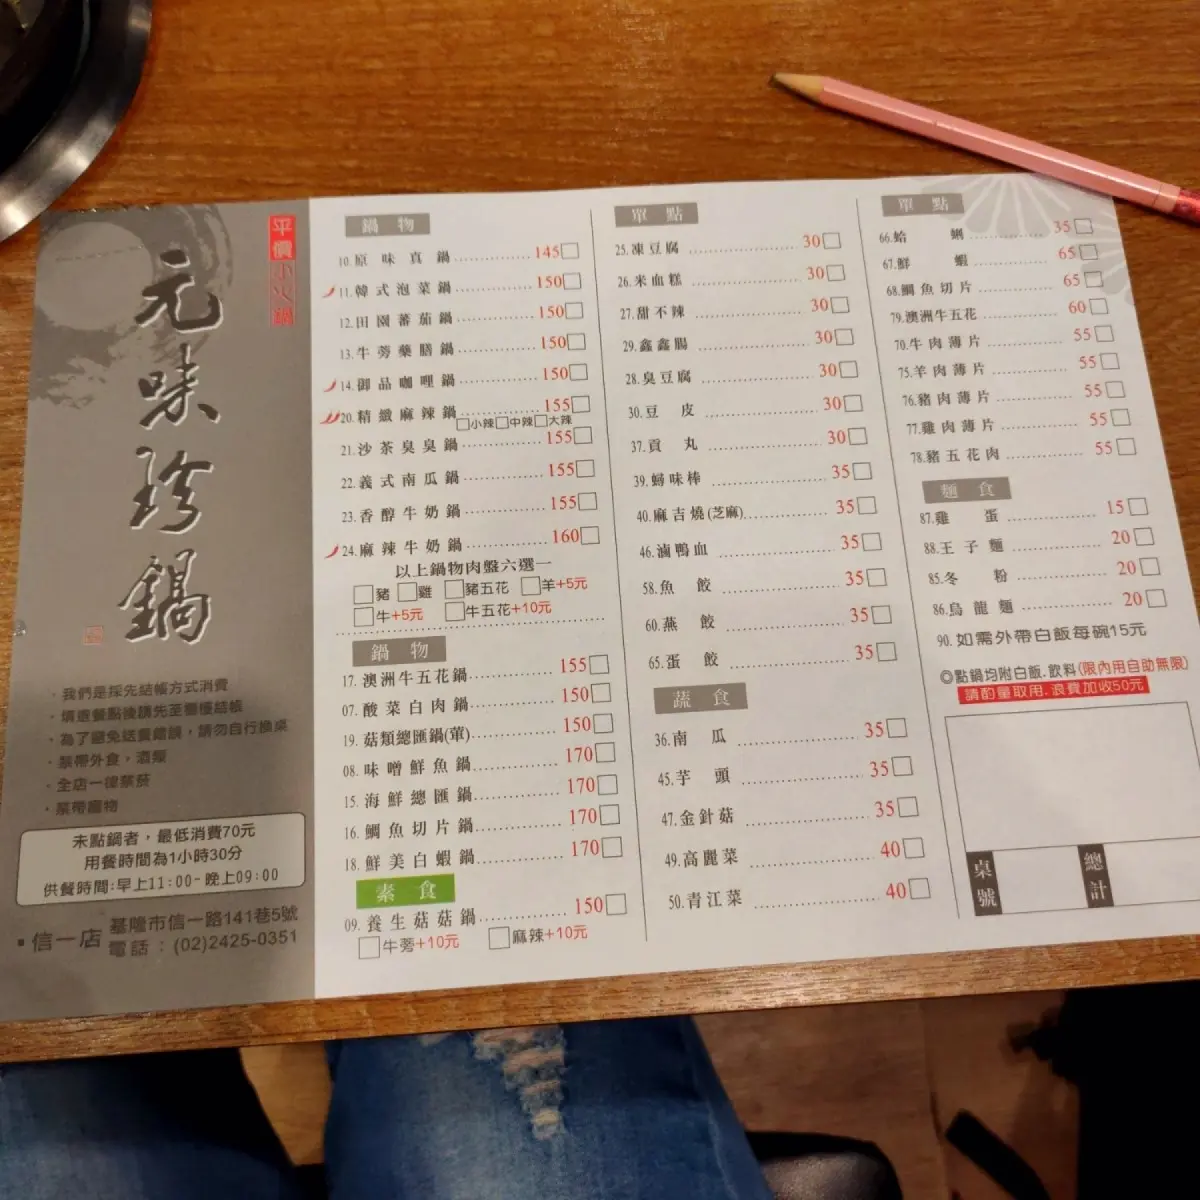 平價小火鍋
元味珍鍋
・我們是採先結帳方式消費
・填選餐點後請先至櫃檯結帳
・為了避免送餐錯誤，請勿自行換桌
・禁帶外食，酒類
・全店一律禁菸
・禁帶寵物
未點鍋者，最低消費70元
用餐時間為1小時30分
供餐時間:早上11:00-晚上09:00
▪信一店 基隆市信一路141巷5號
電話：(02)2425-0351
鍋物
10.原味真鍋 145
11.韓式泡菜鍋 150
12.田園蕃茄鍋 150
13.牛蒡藥膳鍋 150
14.御品咖哩鍋 150
20.精緻麻辣鍋 155
小辣 中辣 大辣
21.沙茶臭臭鍋 155
22.義式南瓜鍋 155
23.香醇牛奶鍋 155
24.麻辣牛奶鍋 160
以上鍋物肉盤六選一
豬 雞 豬五花 羊+5元
牛+5元 牛五花+10元
鍋物
17.澳洲牛五花鍋 155
07.酸菜白肉鍋 150
19.菇類總匯鍋(葷) 150
08.味噌鮮魚鍋 170
15.海鮮總匯鍋 170
16.鯛魚切片鍋 170
18.鮮美白蝦鍋 170
素食
09.養生菇菇鍋 150
牛蒡+10元 麻辣+10元
單點
25.凍豆腐 30
26.米血糕 30
27.甜不辣 30
29.鑫鑫腸 30
28.臭豆腐 30
30.豆皮 30
37.貢丸 30
39.蟳味棒 35
40.麻吉燒(芝麻) 35
46.滷鴨血 35
58.魚餃 35
60.燕餃 35
65.蛋餃 35
蔬食
36.南瓜 35
45.芋頭 35
47.金針菇 35
49.高麗菜 40
50.青江菜 40
單點
66.蛤蜊 35
67.鮮蝦 65
68.鯛魚切片 65
79.澳洲牛五花 60
70.牛肉薄片 55
75.羊肉薄片 55
76.豬肉薄片 55
77.雞肉薄片 55
78.豬五花肉 55
麵食
87.雞蛋 15
88.王子麵 20
85.冬粉 20
86.烏龍麵 20
90.如需外帶白飯每碗15元
◎點鍋均附白飯.飲料(限內用自助無限)
請酌量取用.浪費加收50元
桌號 總計